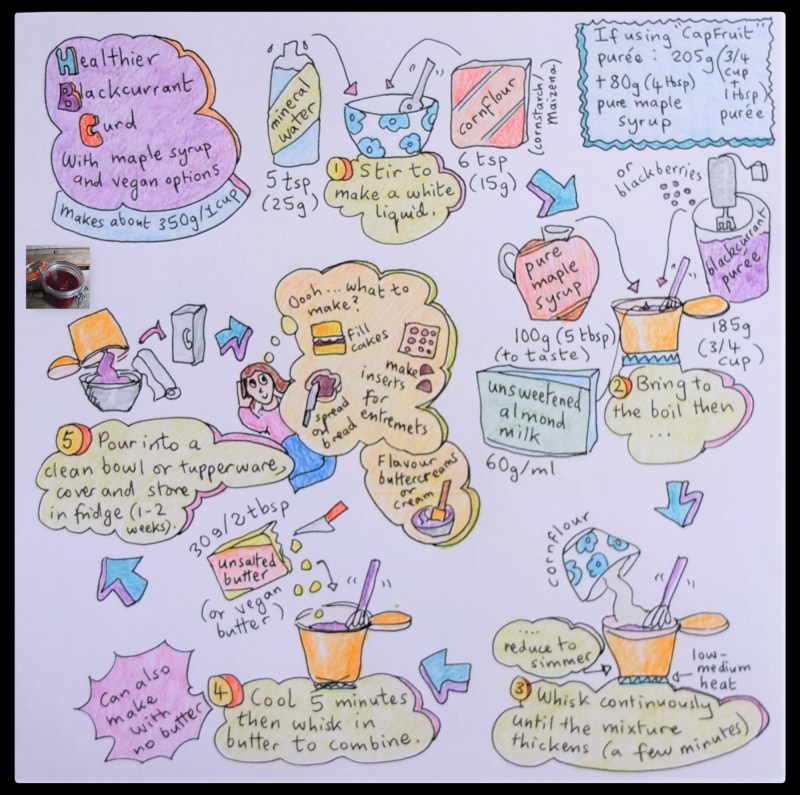 Healthier
Blackcurrant
Curd
With maple syrup
and vegan options
makes about 350g/1cup
mineral
water
5 tsp
(25g)
cornflour
(cornstarch/
Maizena)
6 tsp
(15g)
1 Stir to
make a white
liquid.
If using "CapFruit"
purée : 205g (3/4
cup
+
1tbsp)
purée
+80g (4 tbsp)
pure maple
syrup
or
blackberries
blackcurrant
purée
185g
(3/4
cup)
pure
maple
syrup
100g (5 tbsp)
(to taste)
unsweetened
almond
milk
60g/ml
2 Bring to
the boil then
...
cornflour
....
reduce to
simmer
low-
medium
heat
3 Whisk continuously
until the mixture
thickens (a few minutes)
30g/2 tbsp
unsalted
butter
(or vegan
butter)
4 Cool 5 minutes
then whisk in
butter to combine.
Can also
make
with
no butter
5 Pour into a
clean bowl or tupperware,
cover and store
in fridge (1-2
weeks).
Oooh...what to
make?
Fill
cakes
make
inserts
for
entremets
spread
on
bread
Flavour
buttercreams
or
cream